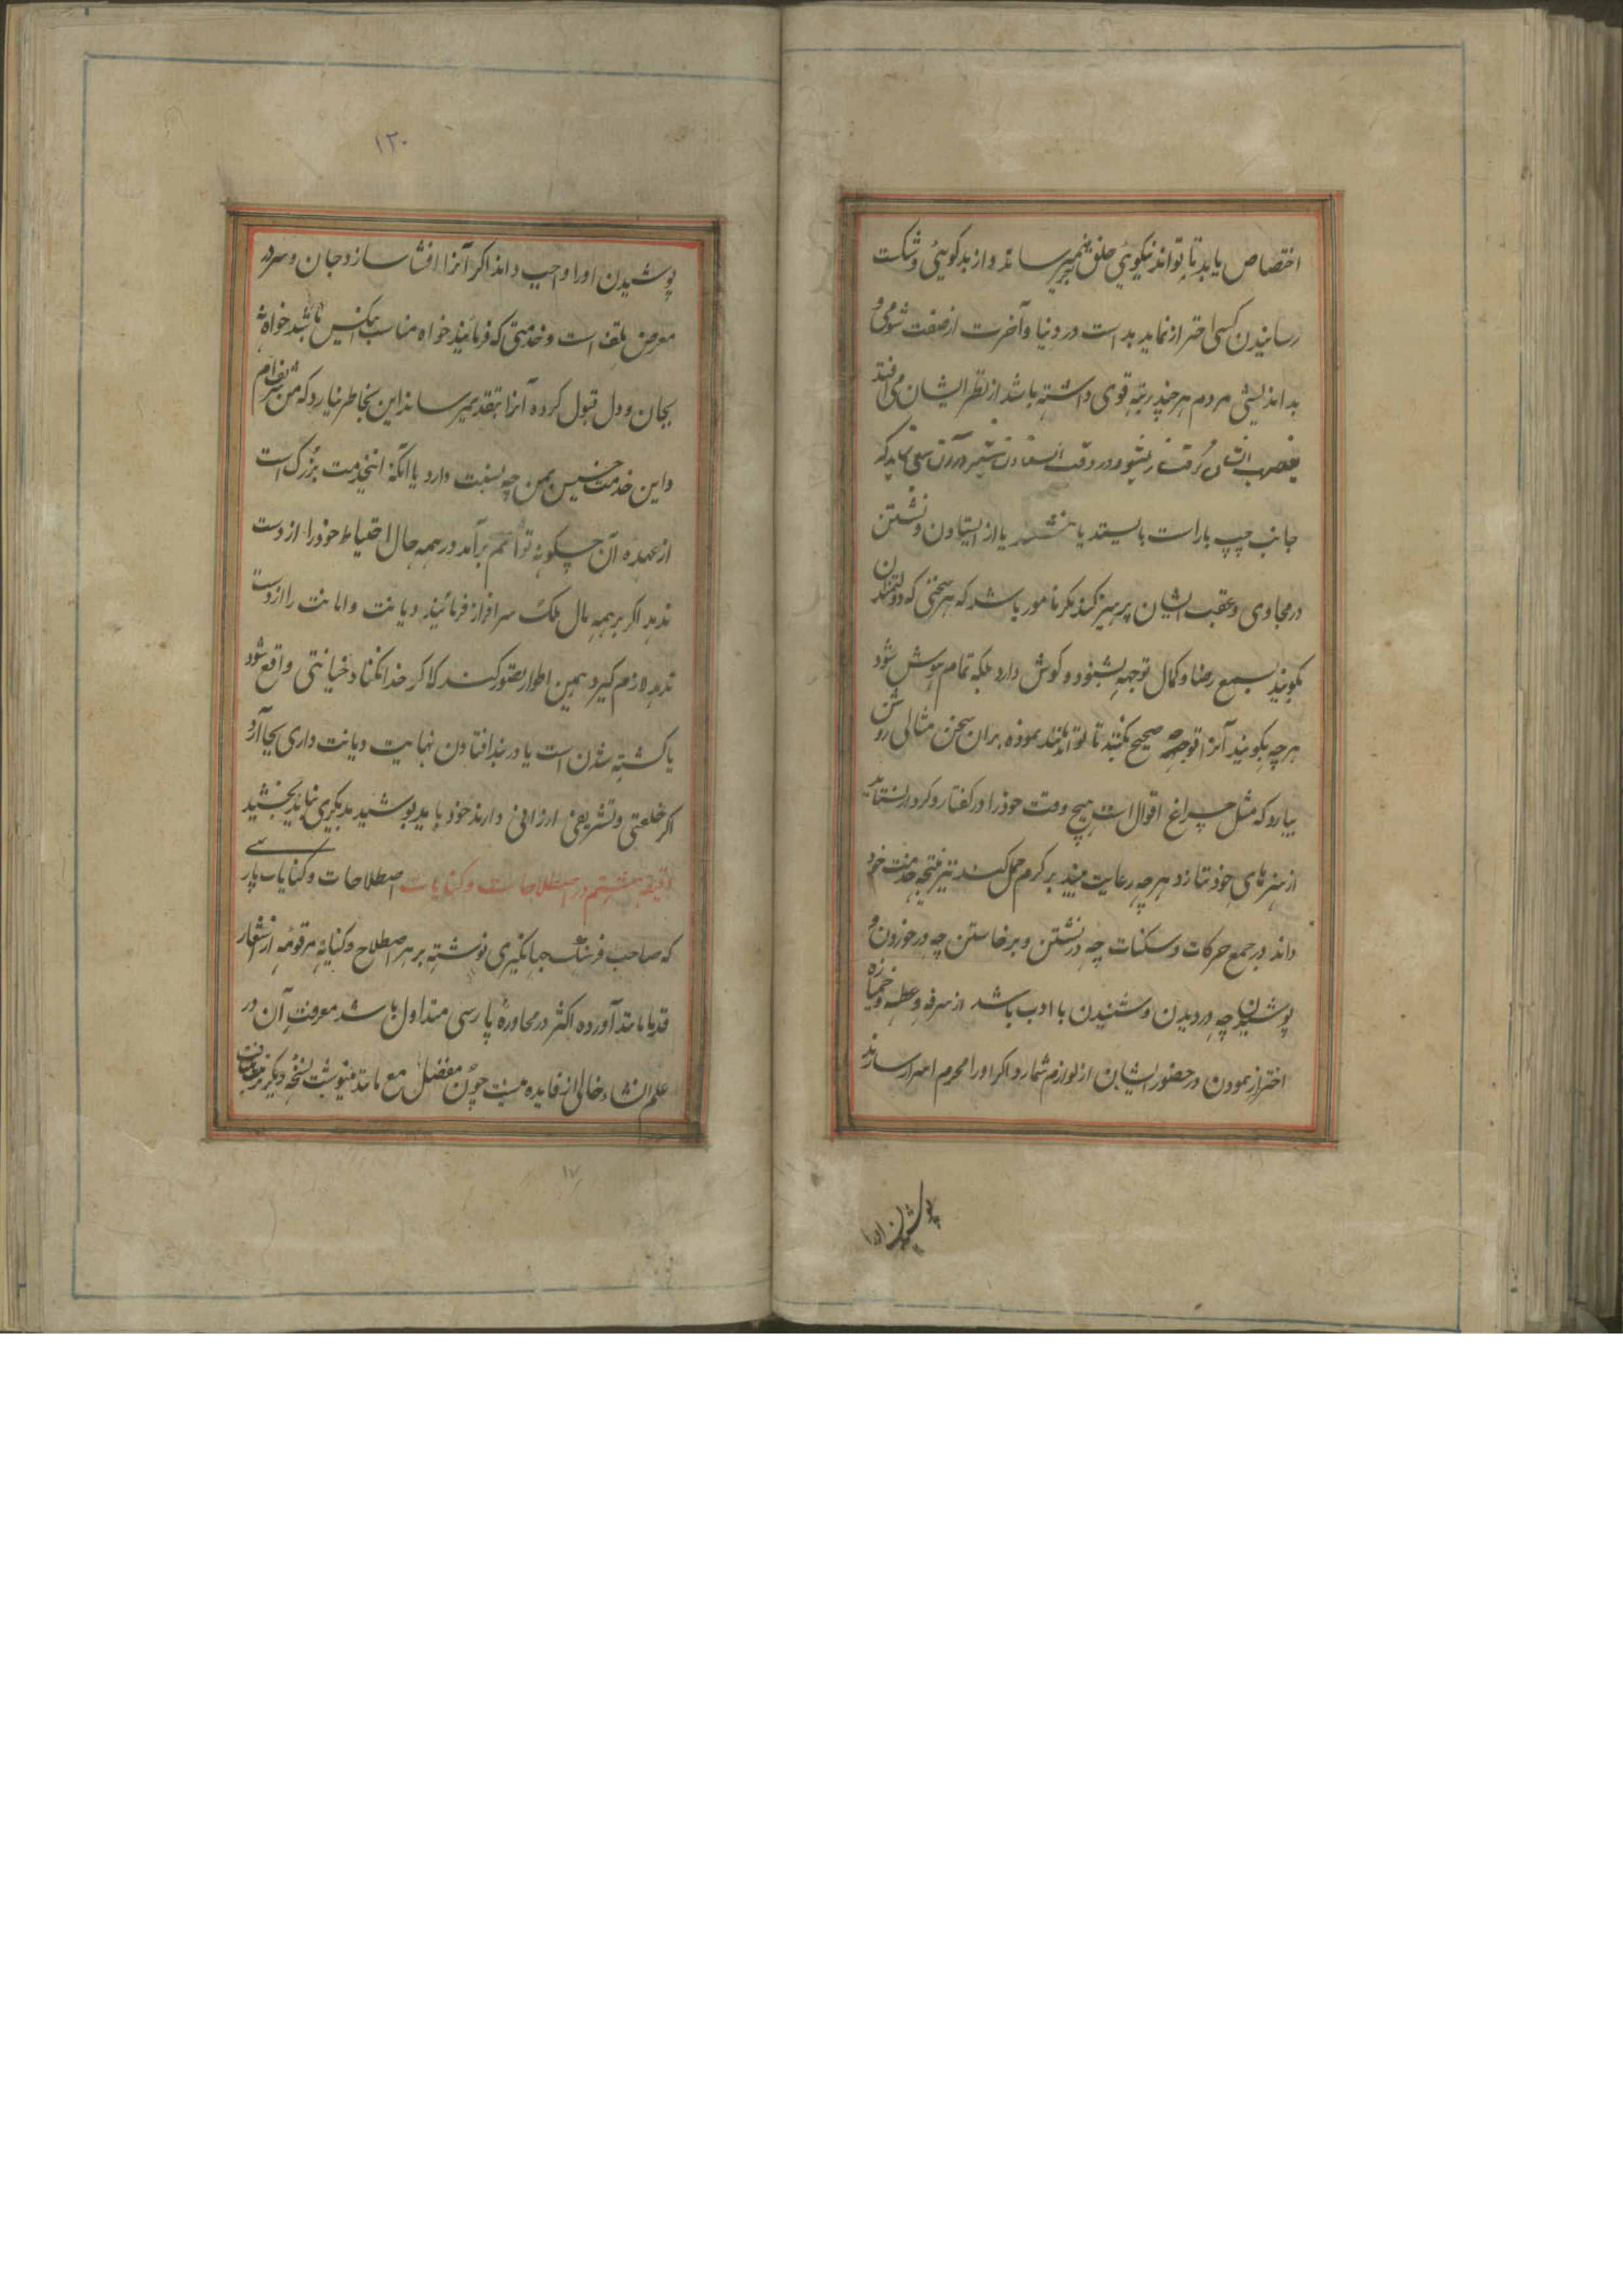 اختصاص یابد تا تواند نیکوئی خلق بمیرساند و از بدکوییٔ و شکست
رسانیدن کسی احتراز نماید بد است در دنیا و آخرت از صفت شومی و
بد اندیشی مردم هر چند رتبه قوی داشته باشد از نظر ایشان می افتد
بغضب ایشان گرفتار نشود و در وقت سعی نماید که
جانب چپ یا راست بایستد یا بنشیند یا از ایستادن و نشستن
در محاوی و عقب ایشان پرهیز کند مکر مامور باشد که هر سخنی که دولتمندان
بکویند بسمع رضا و کمال توجهه بشنود و کوش دارد بلکه تمام هوش شود
هر چه بکویند آنرا توجهه صحیح بکنند تا تواند بلند نموده بران سخن مثالی روشن
بیارد که مثل چراغ اقوال است هیچ وقت خود را در کفتار و کردار نستاید
از هنرهای خود ننازد هر چه رعایت بیند بر کرم حمل کند نیز نتیجه خدمت خود
داند در جمع حرکات و سکنات چه در نشستن و برخاستن چه در خوردن و
پوشیدن چه در دیدن و شنیدن با ادب باشد از سرفه و عطسه و خمیازه
احتراز نمودن در حضور ایشان از لوازم شمارد اکر او را محرم اسرار سازند
پوشیدن اورا
۱۲۰
پوشیدن او را واجب داند اکر آنرا افشا سازد جان و سر در
معرض تلف است و خدمتی که فرمایند خواه مناسب انکس باشد خواه نه
بجان و دل قبول کرده آنرا بتقدیم رساند این بخاطر نیارد که من شریف ام
و این خدمت خسیس بمن چه نسبت دارد یا آنکه اینخدمت بزرک است
از عهده آن چکونه توانم برآمد در همه حال احتیاط خود را از دست
ندهد اکر بر همه مال ملک سرافراز فرمایند دیانت و امانت را از دست
ندهد لازم کیرد همین اطوار تصور کند که اکر خدا نکند خیانتی واقع شود
یا کشته شدن است یا در بند افتادن نهایت دیانت داری بجا آرد
اکر خلعتی و تشریفی ارزانی دارند خود باید پوشید بدیکری نباید بخشید
دقیقه هشتم در اصطلاحات و کنایات اصطلاحات و کنایات پارسی
که صاحب فرهنک جهانکیری نوشته بر هر اصطلاح و کنایه مرقومه از اشعار
قدما مانند آورده اکثر در محاورهٔ پارسی متداول باشد معرفت آن در
علم انشاء خالی از فایده نیست چون مفصل مع مانند مینوشت نسخهٔ دیکر
۱۷